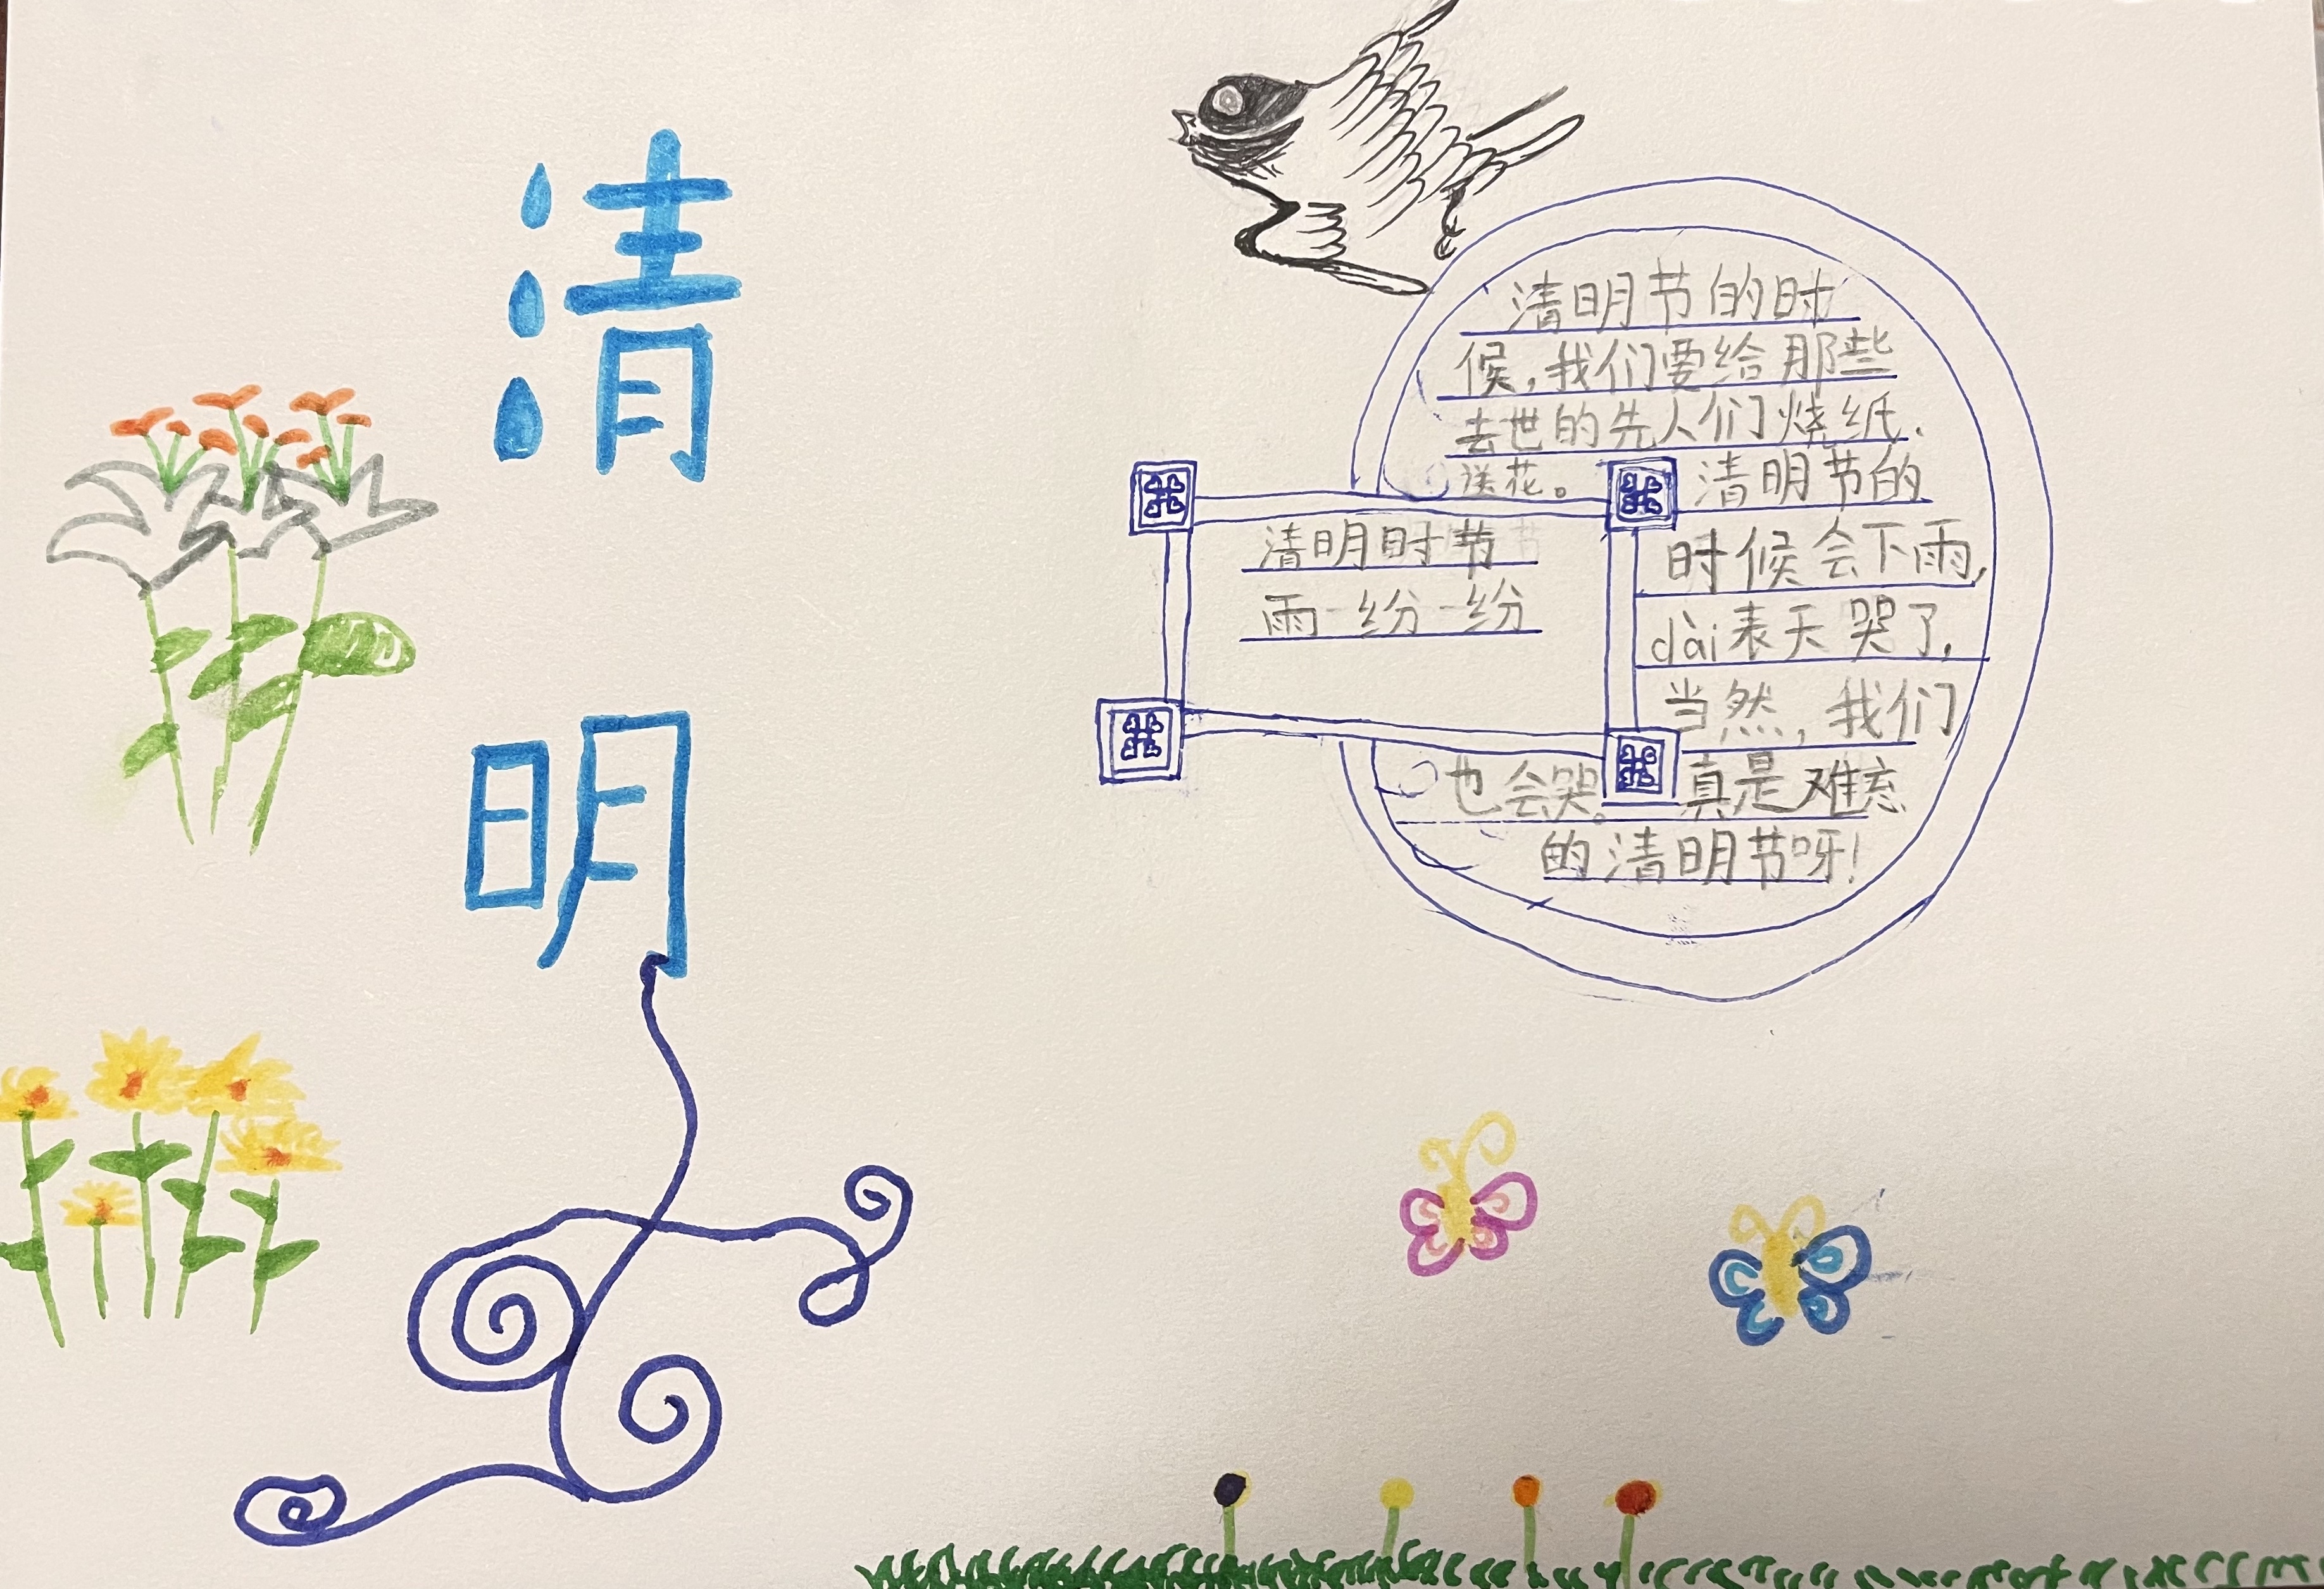 清
明
清明节的时
候,我们要给那些
去世的先人们烧纸.
送花。 清明节的
时候会下雨,
dài表天哭了,
当然,我们
也会哭。真是难忘
的清明节呀!
清明时节
雨纷纷